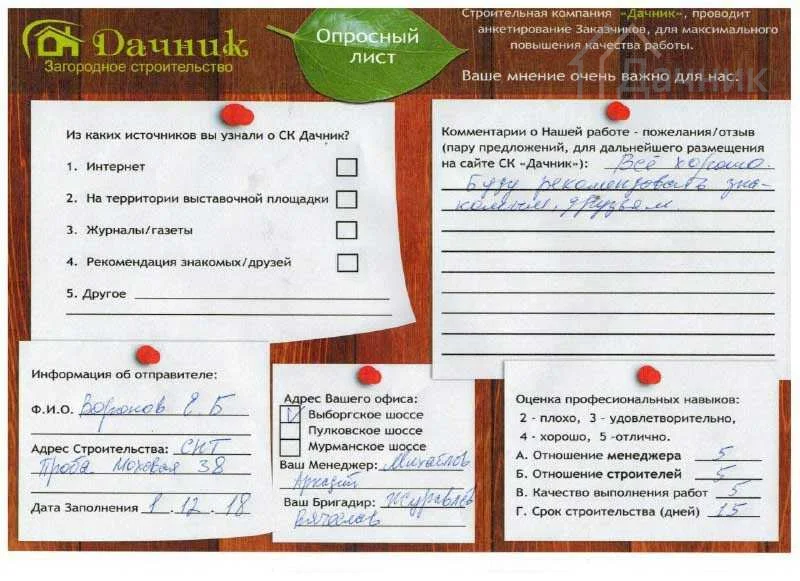 Дачник
Загородное строительство
Опросный
лист
Строительная компания «Дачник», проводит
анкетирование Заказчиков, для максимального
повышения качества работы.
Ваше мнение очень важно для нас.
Дачник
Из каких источников вы узнали о СК Дачник?
1. Интернет
2. На территории выставочной площадки
3. Журналы/газеты
4. Рекомендация знакомых/друзей
5. Другое
Комментарии о Нашей работе - пожелания/отзыв
(пару предложений, для дальнейшего размещения
на сайте СК «Дачник»): Всё хорошо.
Буду рекомендовать зна-
комым, друзьям
Информация об отправителе:
Ф.И.О. Воронов Е.Б
Адрес Строительства: СНТ
Моховая 38
Дата Заполнения 1.12.18
Адрес Вашего офиса:
Выборгское шоссе
Пулковское шоссе
Мурманское шоссе
Ваш Менеджер: Михайлов
Аркадий
Ваш Бригадир: Журавлёв
Вячеслав
Оценка профессиональных навыков:
2 - плохо, 3 - удовлетворительно,
4 - хорошо, 5 -отлично.
А. Отношение менеджера 5
Б. Отношение строителей 5
В. Качество выполнения работ 5
Г. Срок строительства (дней) 15